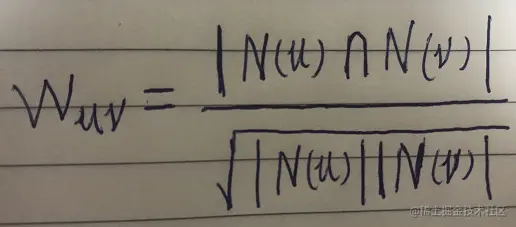 W_{uv} = \frac{|N(u) \cap N(v)|}{\sqrt{|N(u)||N(v)|}}
@稀土掘金技术社区